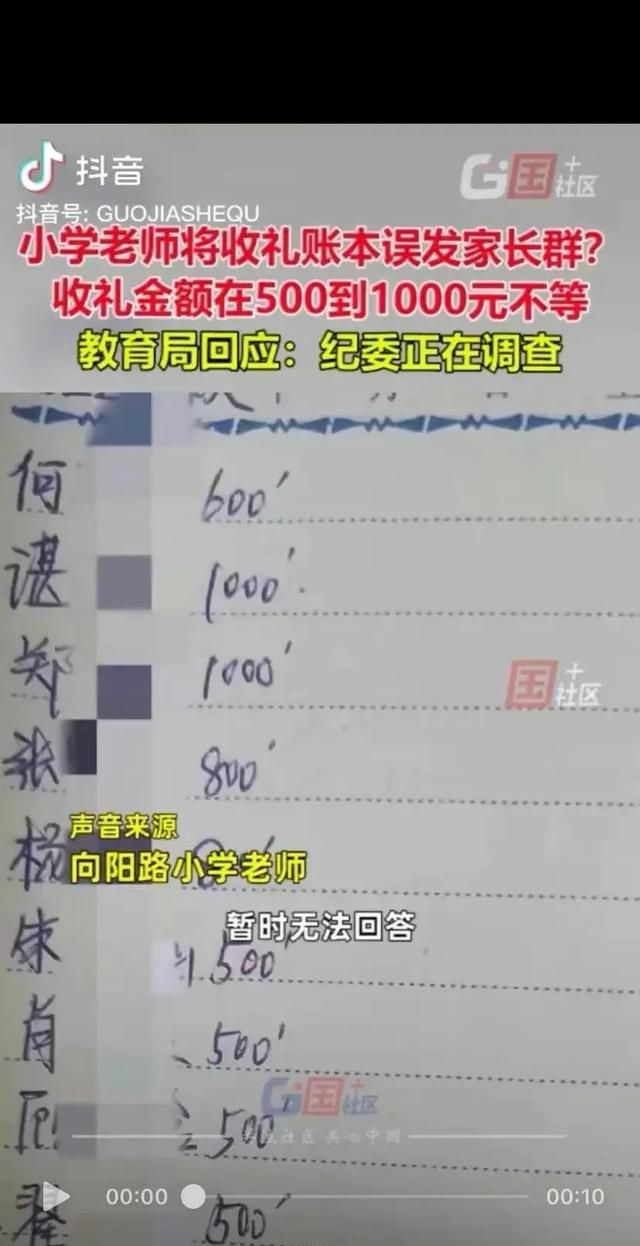 抖音
抖音号: GUOJIASHEQU
G国+社区
小学老师将收礼账本误发家长群?
收礼金额在500到1000元不等
教育局回应：纪委正在调查
何 600
谌 1000
郑 1000
国+社区
张 800
声音来源
杨
向阳路小学老师
暂时无法回答
朱 500
肖 500
G国+社区
500
共心中国
翟 500
00:00
00:10